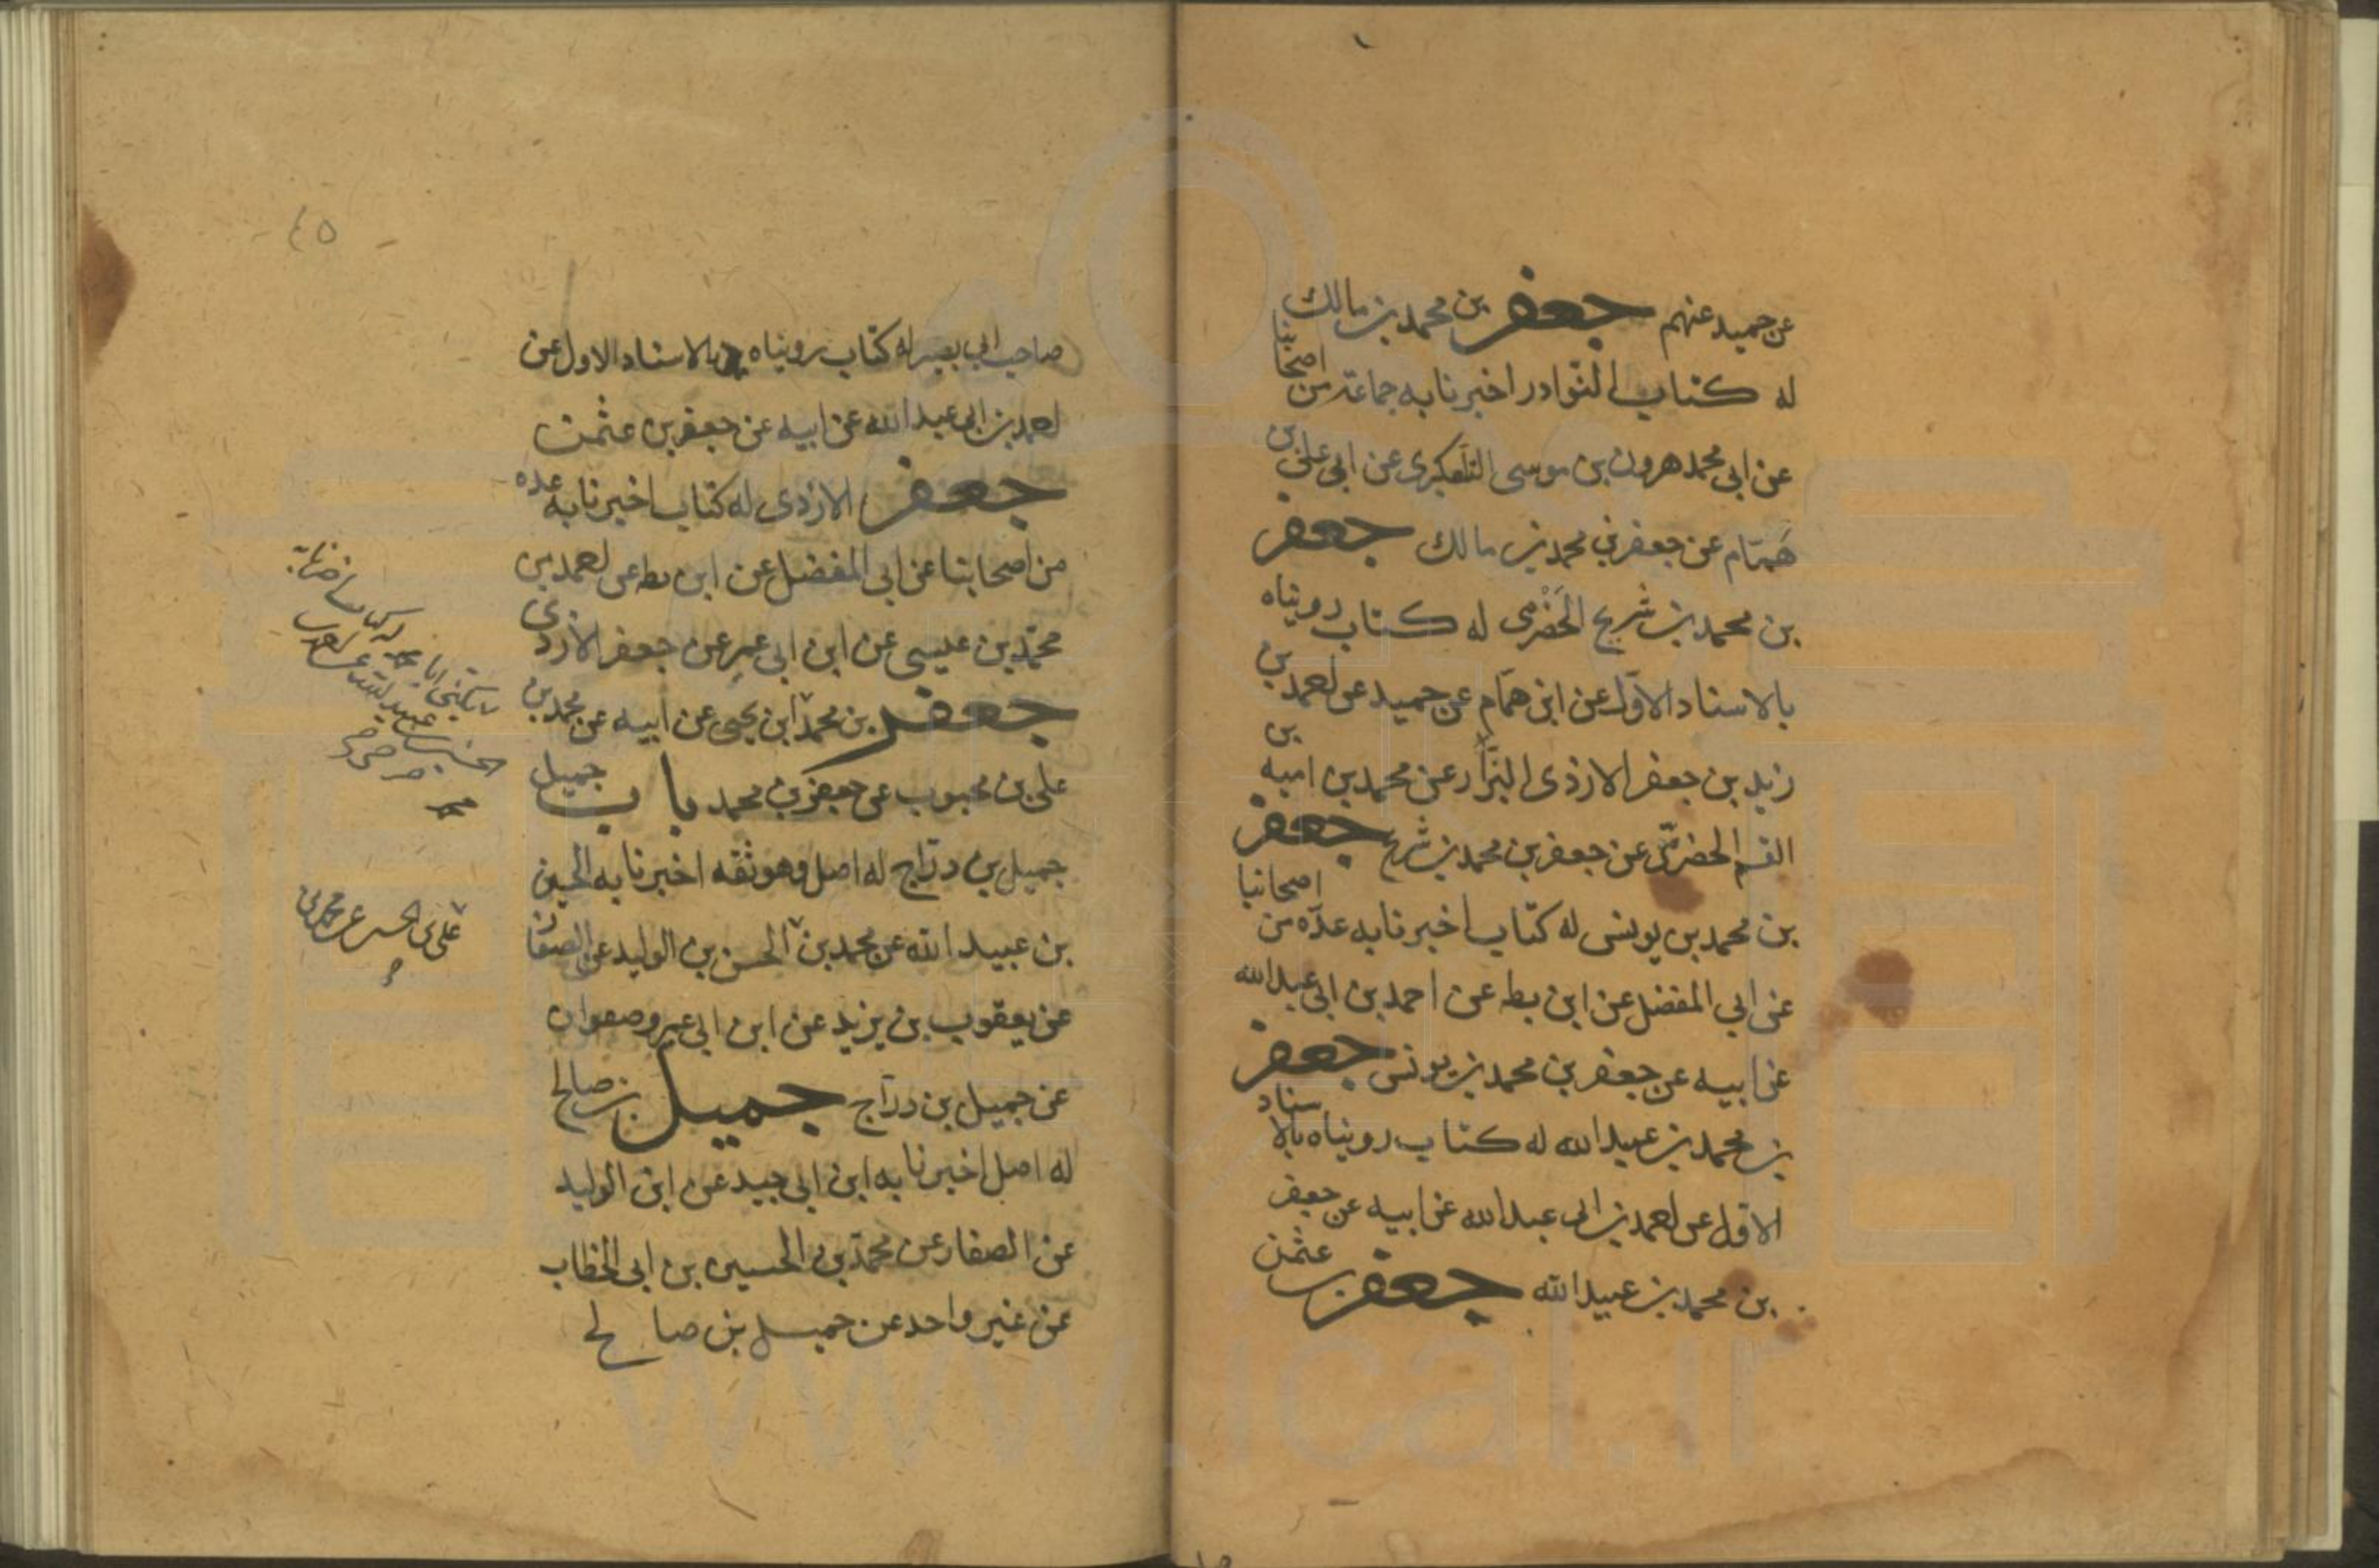 عن حميد عنهم جعفر بن محمد بن مالك
له كتاب النوادر اخبرنا به جماعة من اصحابنا
عن ابى محمد هرون بن موسى التلعكبرى عن ابى على بن
همّام عن جعفر بن محمد بن مالك جعفر
بن محمد بن شريح الحَضْرمى له كتاب رويناه
بالاسناد الاوّل عن ابن همّام عن حميد عن احمد بن
زيد بن جعفر الازدى البزّار عن محمد بن اميه بن
القسم الحضرمّى عن جعفر بن محمد بن شريح جعفر
بن محمد بن يونس له كتاب اخبرنا به عدّه من اصحابنا
عن ابي المفضل عن ابن بطه عن احمد بن ابى عبد الله
عن ابيه عن جعفر بن محمد بن يونس جعفر
بن محمد بن عبيد الله له كتاب رويناه بالاسناد
الاول عن احمد بن ابى عبد الله عن ابيه عن جعفر
بن محمد بن عبيد الله جعفر بن عثمن
٤٥
صاحب ابي بصير له كتاب رويناه بالاسناد الاول عن
احمد بن ابى عبد الله عن ابيه عن جعفر بن عثمن
جعفر الازدى له كتاب اخبرنا به عده
من اصحابنا عن ابى المفضل عن ابن بطه عن احمد بن
محمّد بن عيسى عن ابن ابى عمير عن جعفر الازدى
جعفر بن محمد ابن يحيى عن ابيه عن محمد بن
على بن محبوب عن جعفر بن محمد باب جميل
جميل بن درّاج له اصل وهو ثقه اخبرنا به الحسين
بن عبيد الله عن محمد بن الحسن بن الوليد عن الصفار
عن يعقوب بن يزيد عن ابن ابى عمير وصفوان
عن جميل بن درّاج جميل بن صالح
له اصل اخبرنا به ابن ابى جيد عن ابن الوليد
عن الصفار عن محمّد بن الحسين بن ابى الخطاب
عن غير واحد عن جميل بن صالح
على بن الحسين عن محمد بن
www.ical.ir